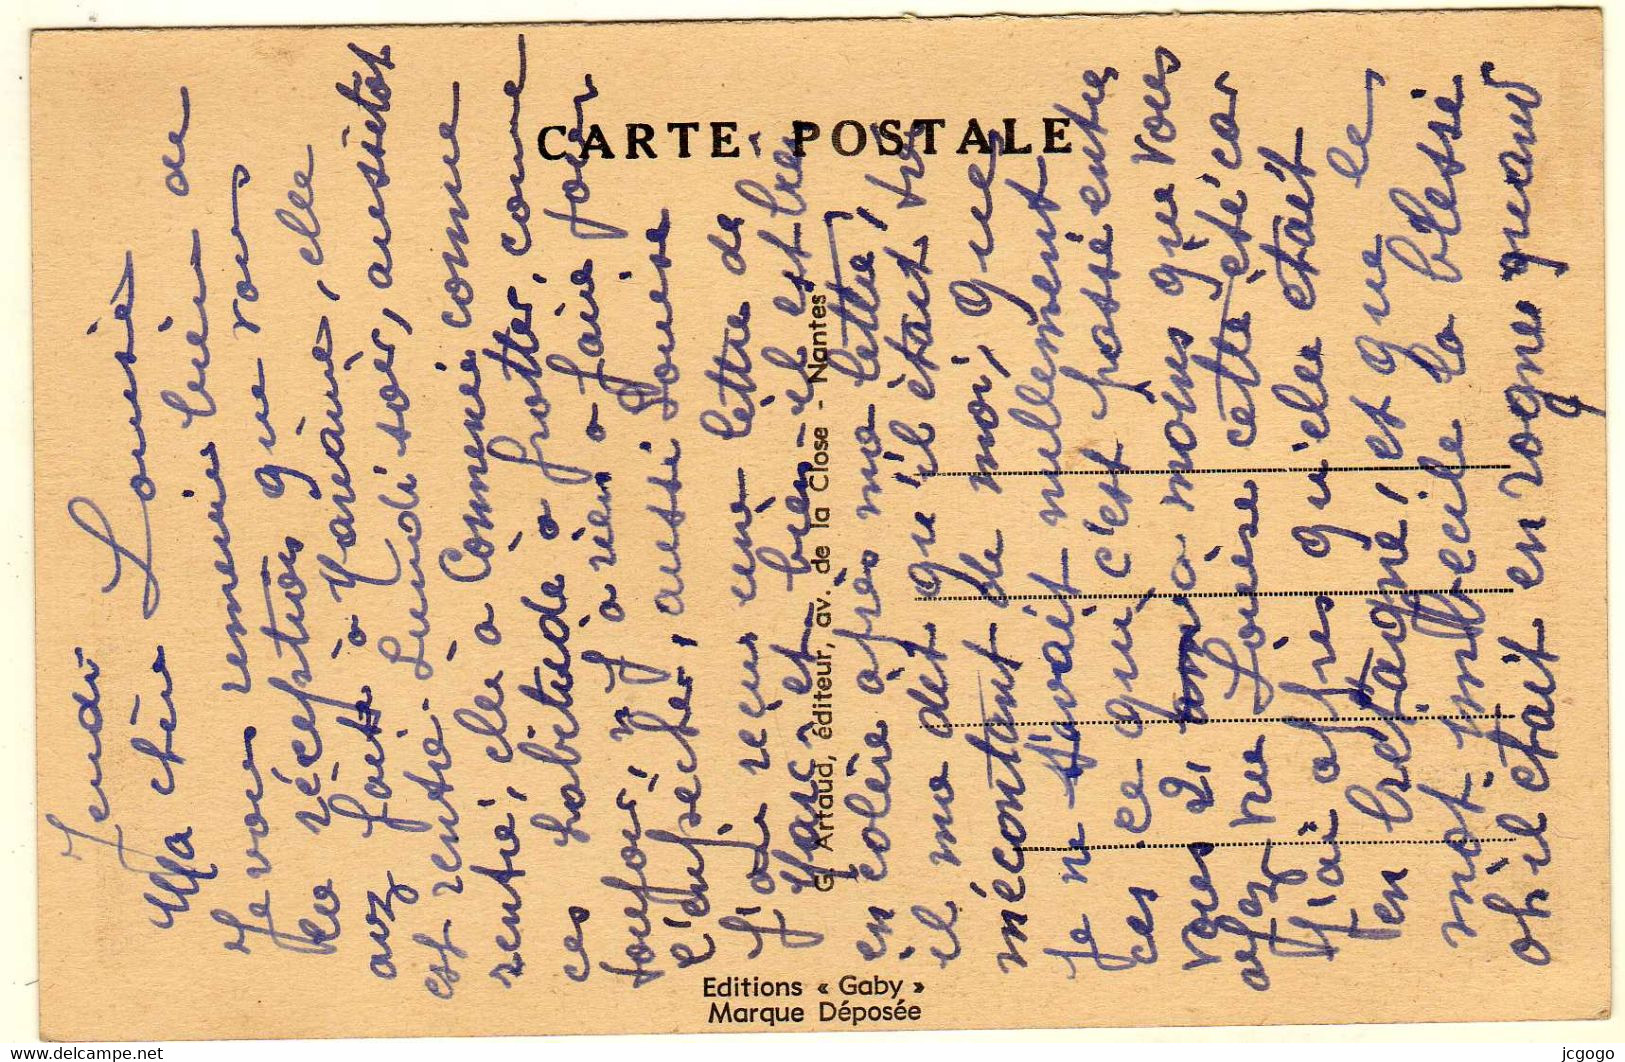 CARTE POSTALE
Jeudi
Ma chère Louise
Je vous remercie bien de
la réception que vous
avez faite à Maxime, elle
est rentré Lundi soir, aussitôt
rentré, elle a commencé comme
ces habitude à frotter, comme
toujour, il y a rien a faire pour
l'empècher, aussi Louise
J'ai reçus une lettre de
Marcel bien il est très
en colère après ma lettre,
il ma dit qu'il était très
mécontant de moi, que
Je ne savait nullement
ce qui c'est passé entre
vous 2, a moins que vous
avez vue Louise cette été car
J'ai apris qu'elle était
en bretagne, est que le
mot imbecile la blessé
oh il était en rogne quand
G. Artaud, éditeur, av. de la Close - Nantes
Editions « Gaby »
Marque Déposée
https://www.delcampe.net
jcgogo